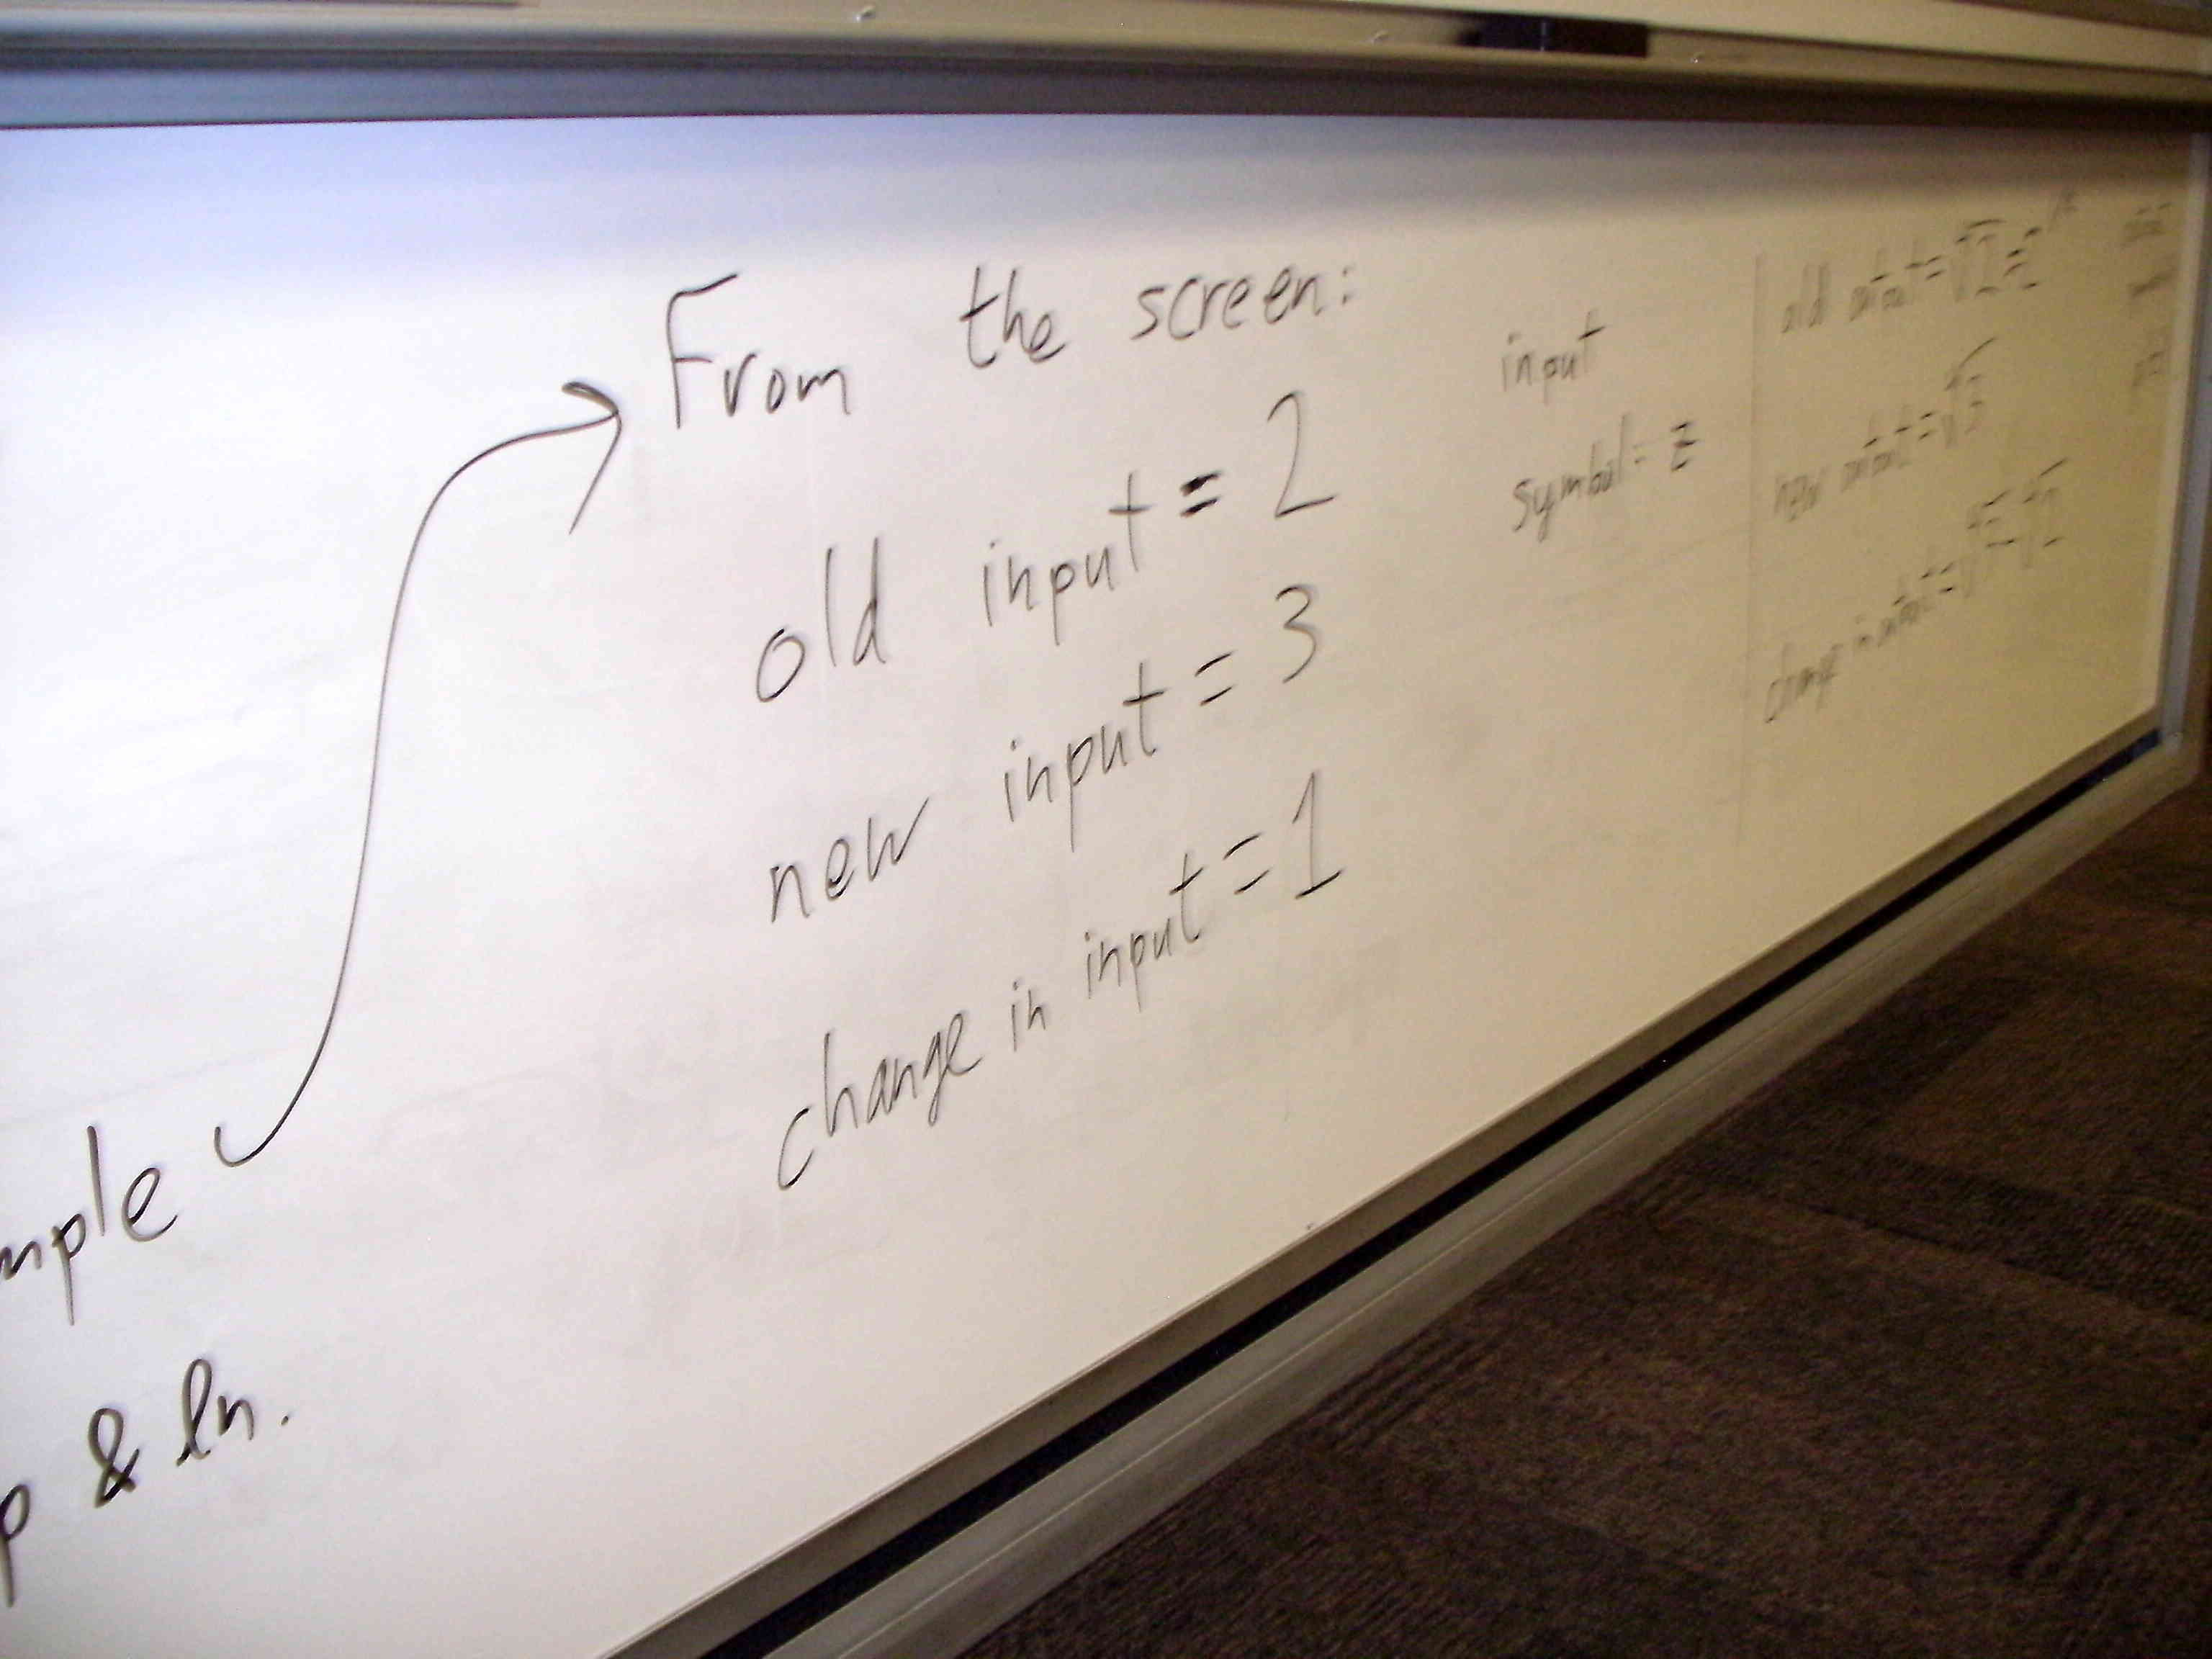 From the screen:
old input = 2
new input = 3
change in input = 1
input
symbol = z
old output =
new output = √3
change in output =
mple
p & ln.